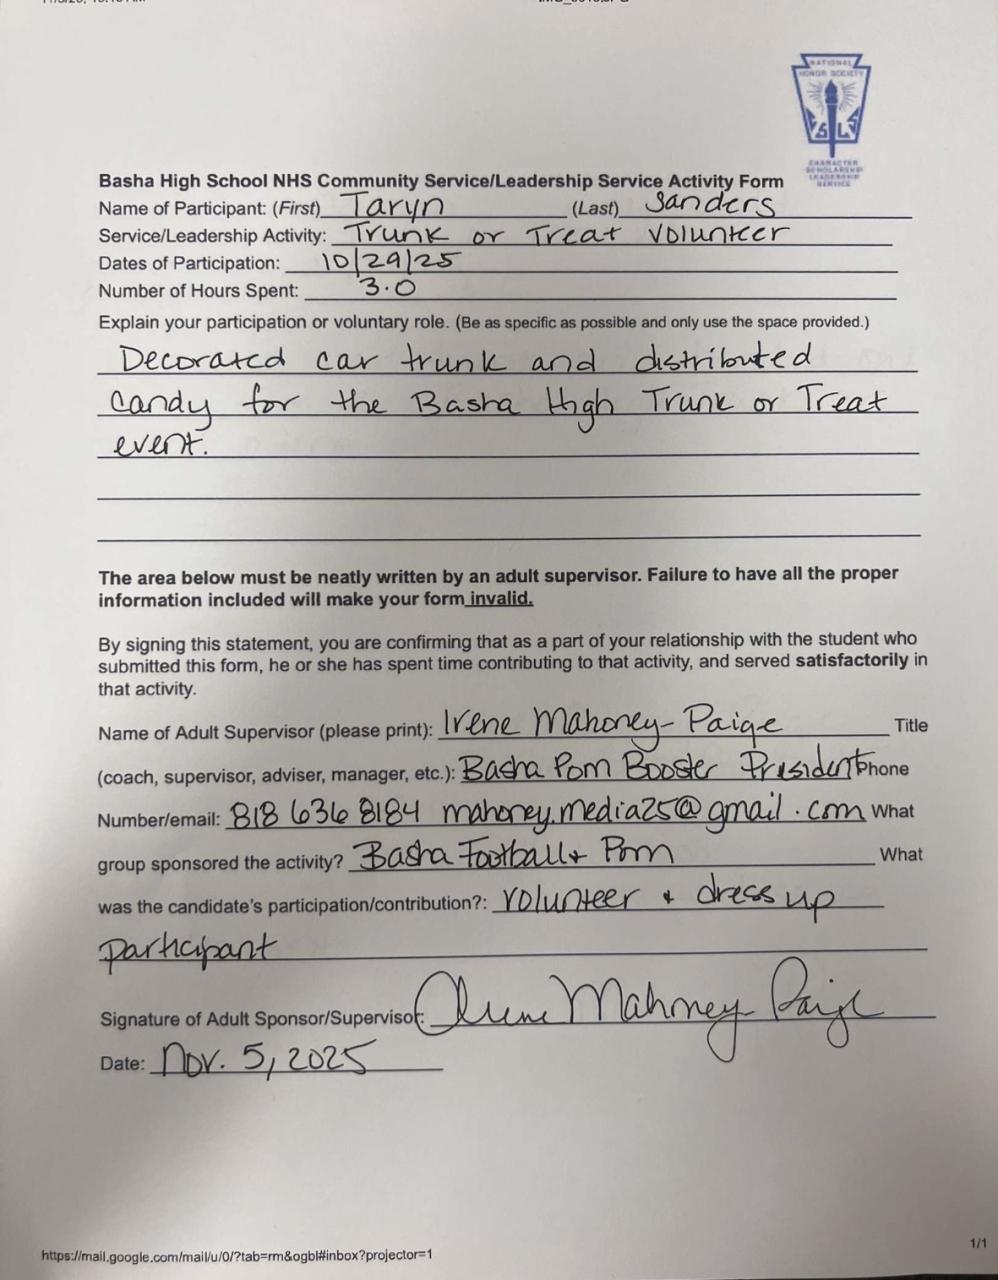 NATIONAL
HONOR SOCIETY
CHARACTER
SCHOLARSHIP
LEADERSHIP
SERVICE
Basha High School NHS Community Service/Leadership Service Activity Form
Name of Participant: (First) Taryn (Last) Sanders
Service/Leadership Activity: Trunk or Treat Volunteer
Dates of Participation: 10/29/25
Number of Hours Spent: 3.0
Explain your participation or voluntary role. (Be as specific as possible and only use the space provided.)
Decorated car trunk and distributed
candy for the Basha High Trunk or Treat
event.
The area below must be neatly written by an adult supervisor. Failure to have all the proper
information included will make your form invalid.
By signing this statement, you are confirming that as a part of your relationship with the student who
submitted this form, he or she has spent time contributing to that activity, and served satisfactorily in
that activity.
Name of Adult Supervisor (please print): Irene Mahoney-Paige Title
(coach, supervisor, adviser, manager, etc.): Basha Pom Booster President Phone
Number/email: 818 636 8184 mahoney.media25@gmail.com What
group sponsored the activity? Basha Football + Pom What
was the candidate's participation/contribution?: volunteer + dress up
participant
Signature of Adult Sponsor/Supervisor: Irene Mahoney-Paige
Date: Nov. 5, 2025
https://mail.google.com/mail/u/0/?tab=rm&ogbl#inbox?projector=1
1/1